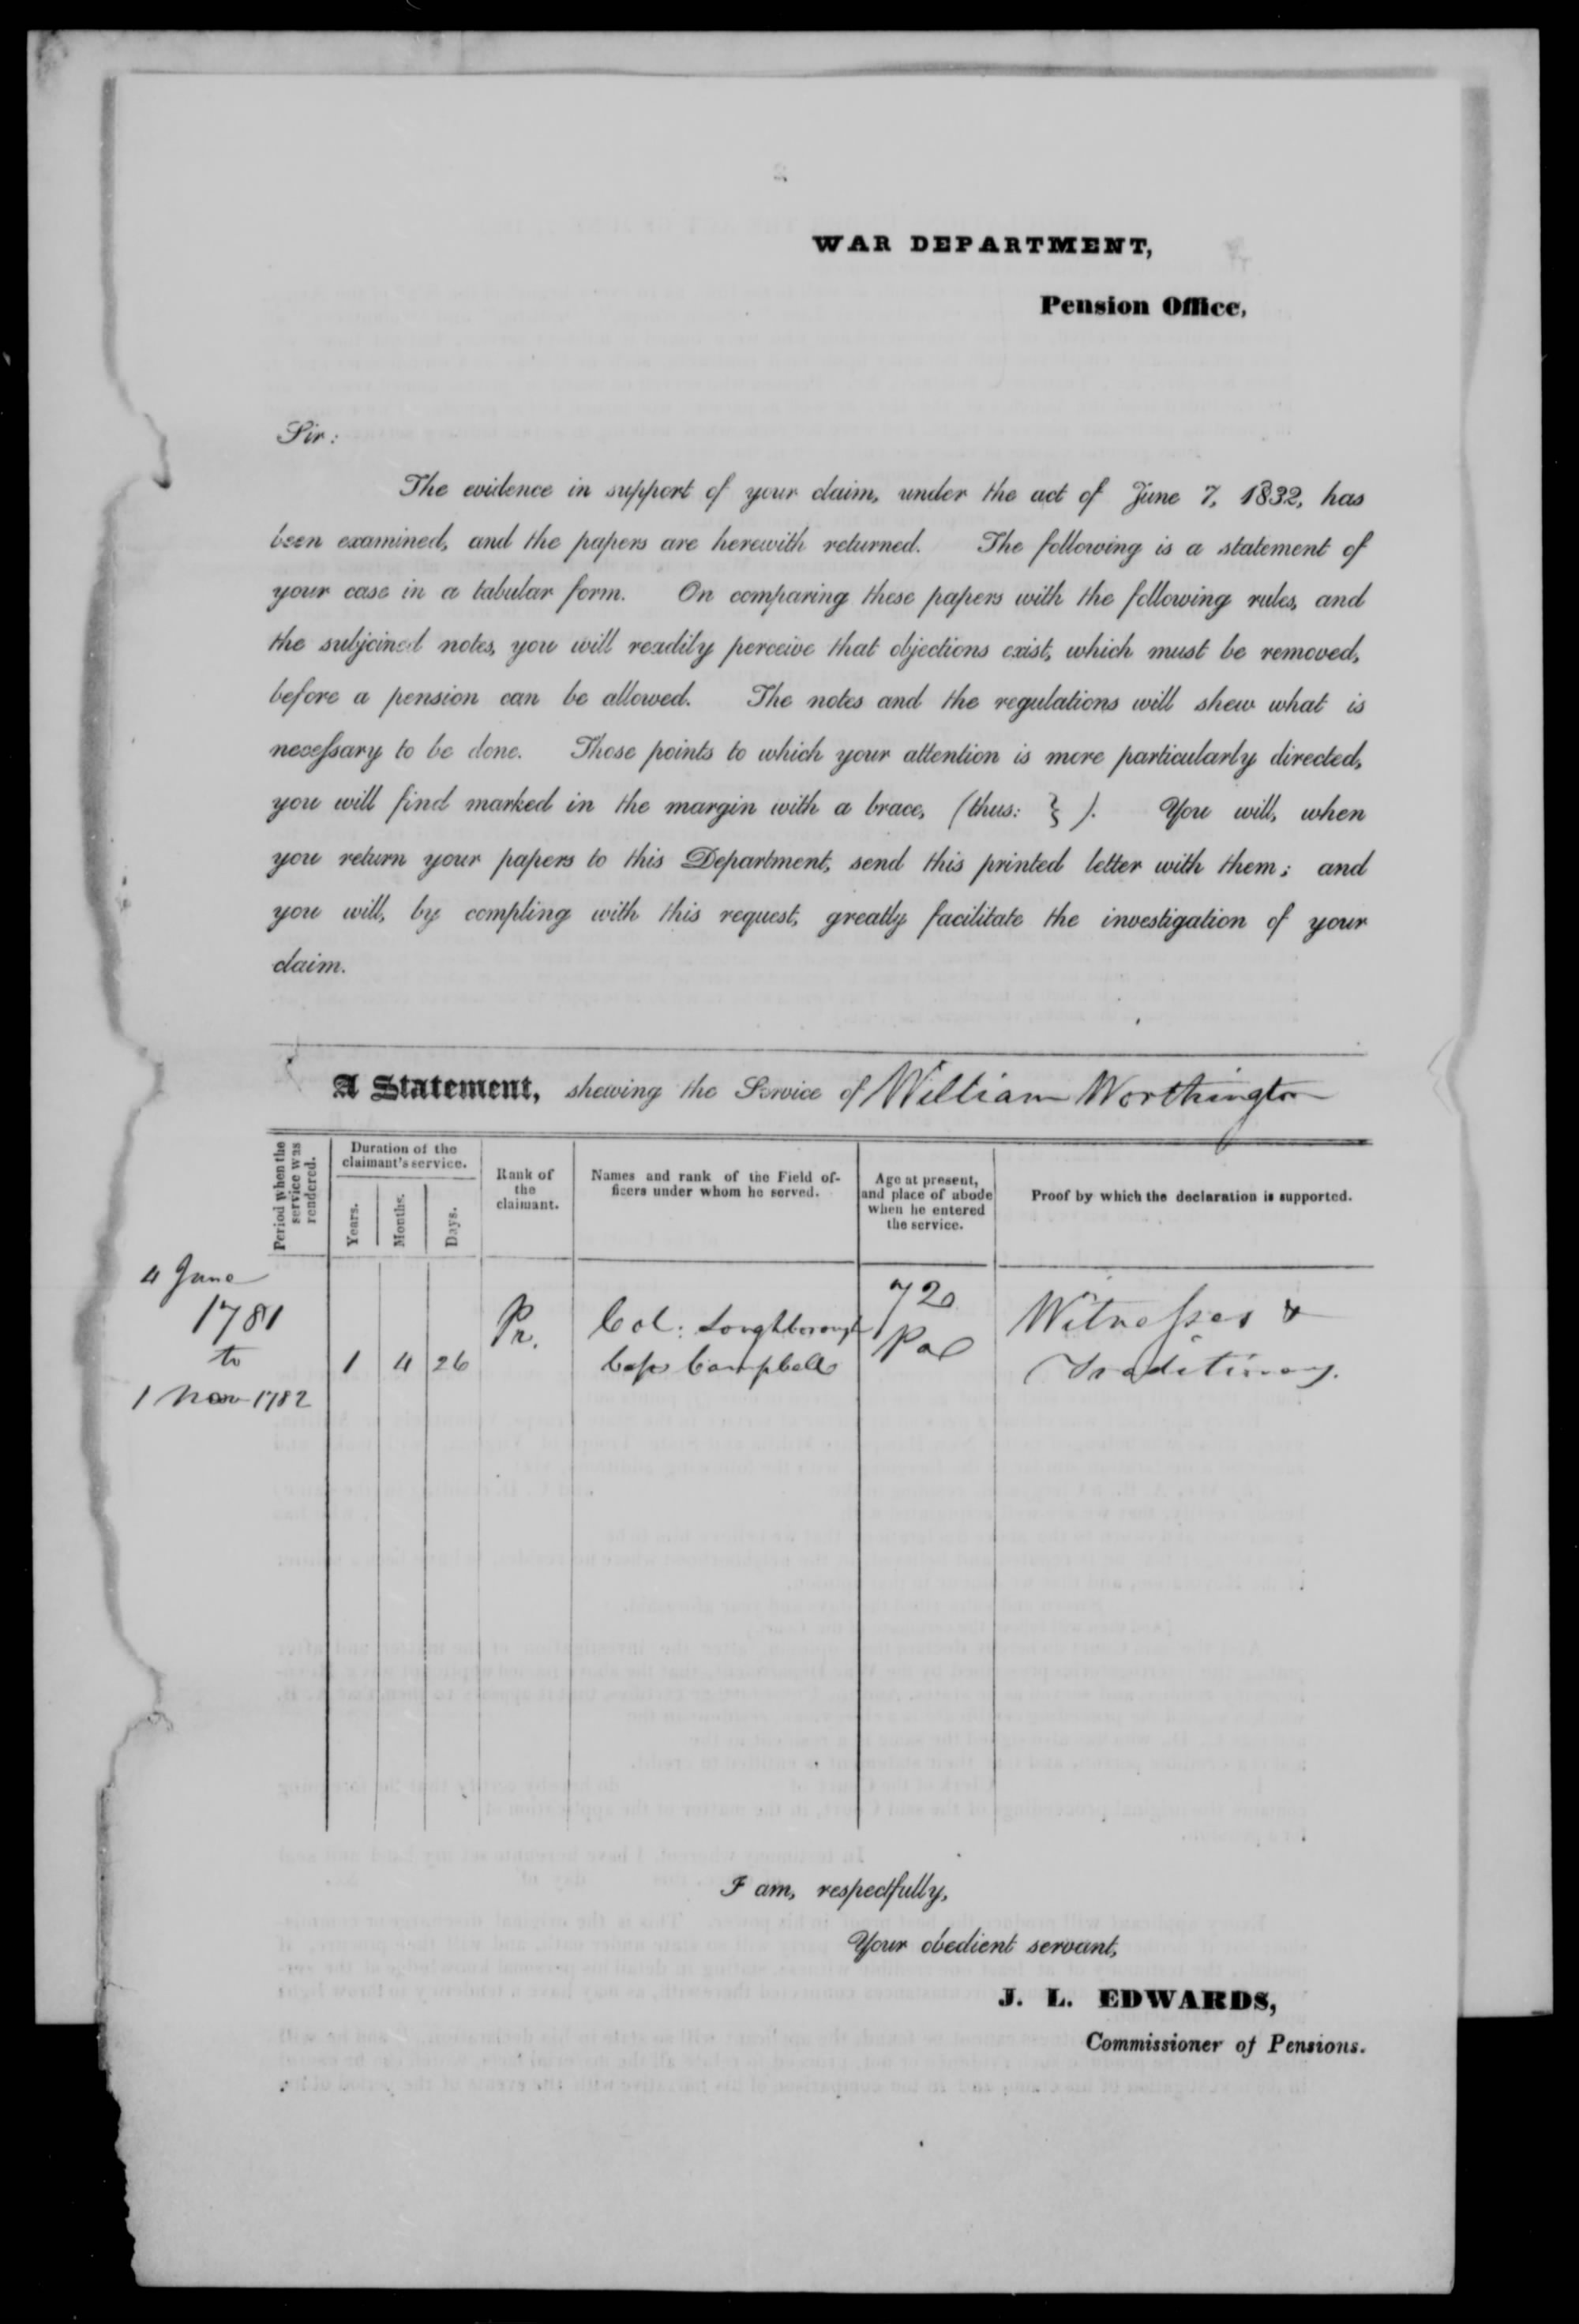 WAR DEPARTMENT,
Pension Office,
Sir:
The evidence in support of your claim, under the act of June 7, 1832, has
been examined, and the papers are herewith returned. The following is a statement of
your case in a tabular form. On comparing these papers with the following rules, and
the subjoined notes, you will readily perceive that objections exist, which must be removed,
before a pension can be allowed. The notes and the regulations will shew what is
necessary to be done. Those points to which your attention is more particularly directed,
you will find marked in the margin with a brace, (thus: } ). You will, when
you return your papers to this Department, send this printed letter with them; and
you will, by compling with this request, greatly facilitate the investigation of your
claim.
A Statement, shewing the Service of William Worthington
Period when the
service was
rendered.
Duration of the
claimant's service.
Years.
Months.
Days.
Rank of
the
claimant.
Names and rank of the Field of-
ficers under whom he served.
Age at present,
and place of abode
when he entered
the service.
Proof by which the declaration is supported.
4 June
1781
to
1 Nov 1782
1
4
26
Pr.
Col: Loughborough
Capt Campbell
72
Pa
Witnesses &
Traditionary.
I am, respectfully,
Your obedient servant,
J. L. EDWARDS,
Commissioner of Pensions.